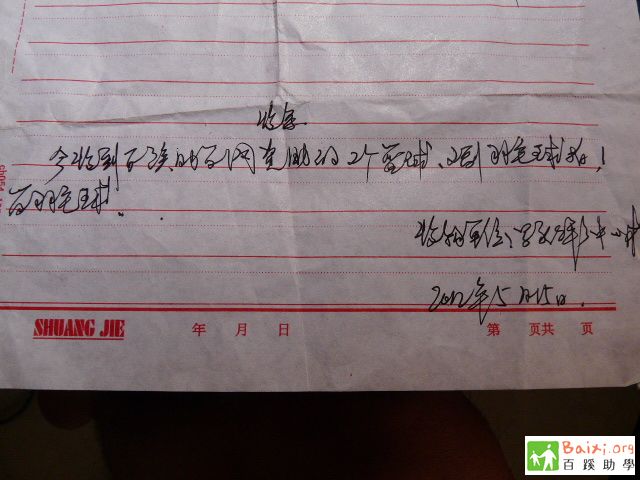 收条
今收到百溪助学网资助的2个篮球、2副羽毛球拍、1
筒羽毛球.
收物单位:
2012年5月15日.
SHUANG JIE 年 月 日 第 页共 页
Baixi.org
百蹊助學